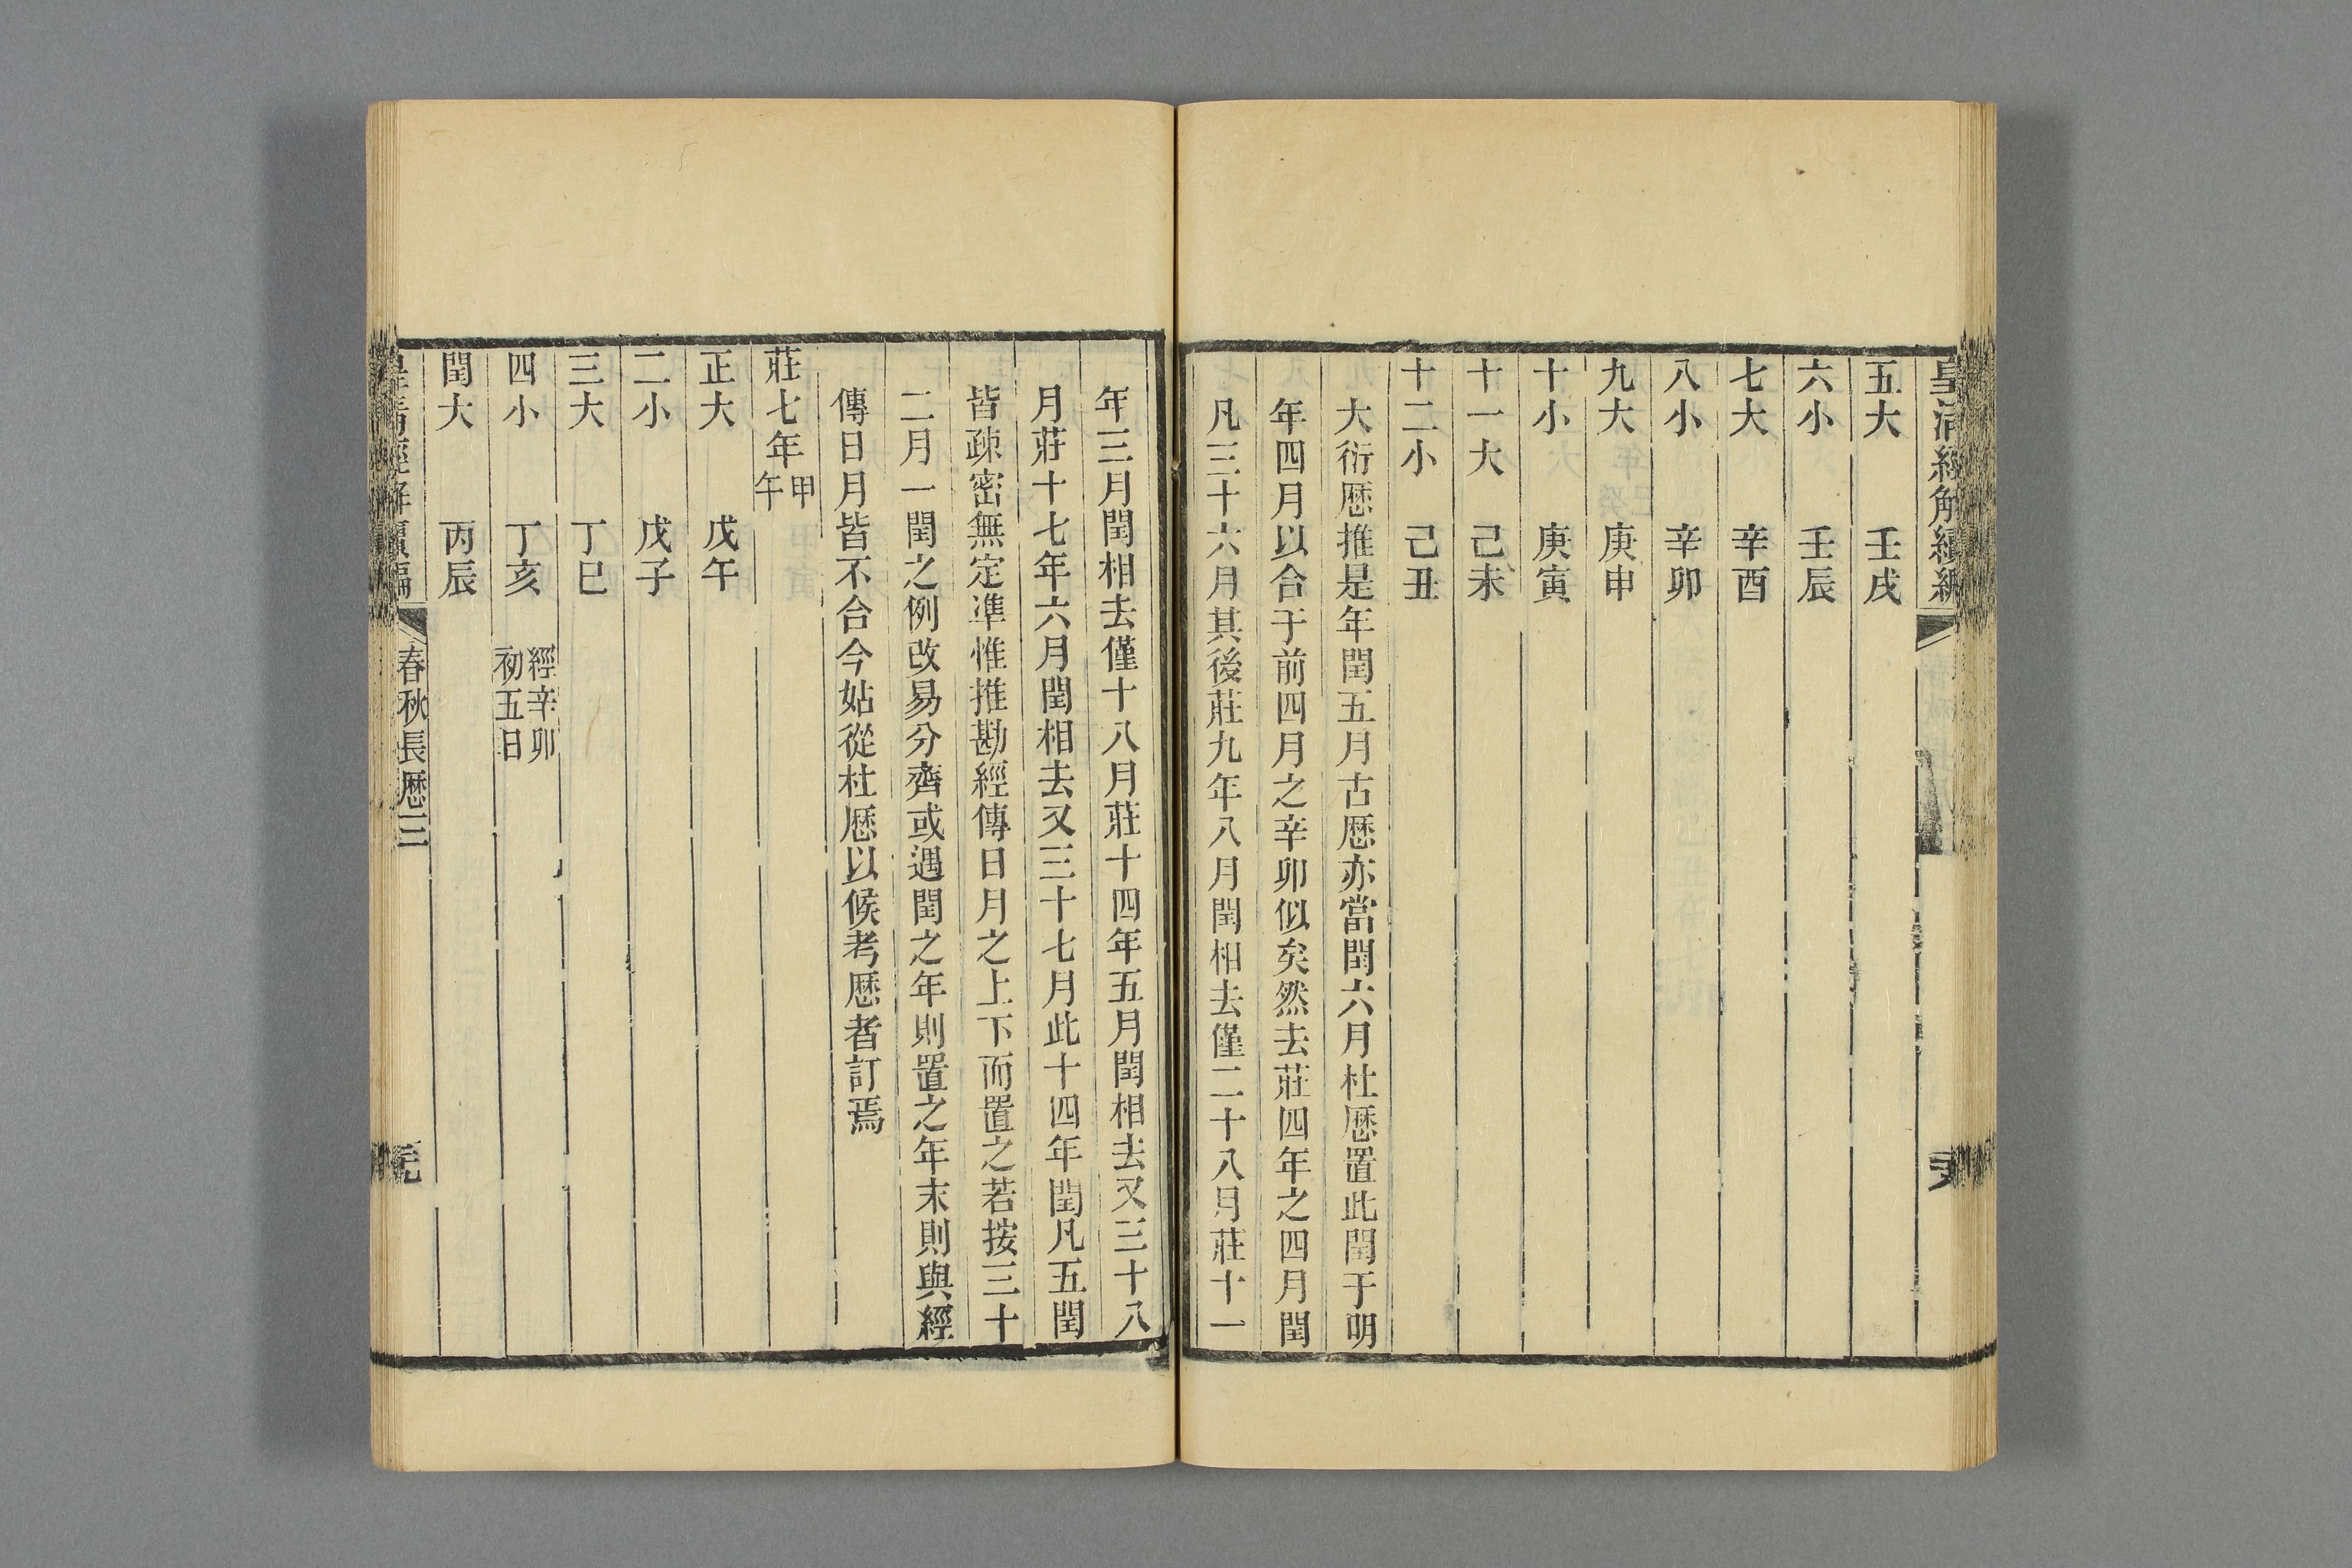 皇清經解續編
五大　壬戌
六小　壬辰
七大　辛酉
八小　辛卯
九大　庚申
十小　庚寅
十一大　己未
十二小　己丑
大衍厯推是年閏五月古厯亦當閏六月杜厯置此閏于明
年四月以合于前四月之辛卯似矣然去莊四年之四月閏
凡三十六月其後莊九年八月閏相去僅二十八月莊十一
年三月閏相去僅十八月莊十四年五月閏相去又三十八
月莊十七年六月閏相去又三十七月此十四年閏凡五閏
皆疎密無定準惟推勘經傳日月之上下而置之若按三十
二月一閏之例改易分齊或遇閏之年則置之年末則與經
傳日月皆不合今姑從杜厯以候考厯者訂焉
莊七年甲午
正大　戊午
二小　戊子
三大　丁巳
四小　丁亥　經辛卯初五日
閏大　丙辰
皇清經解續編　春秋長厯三